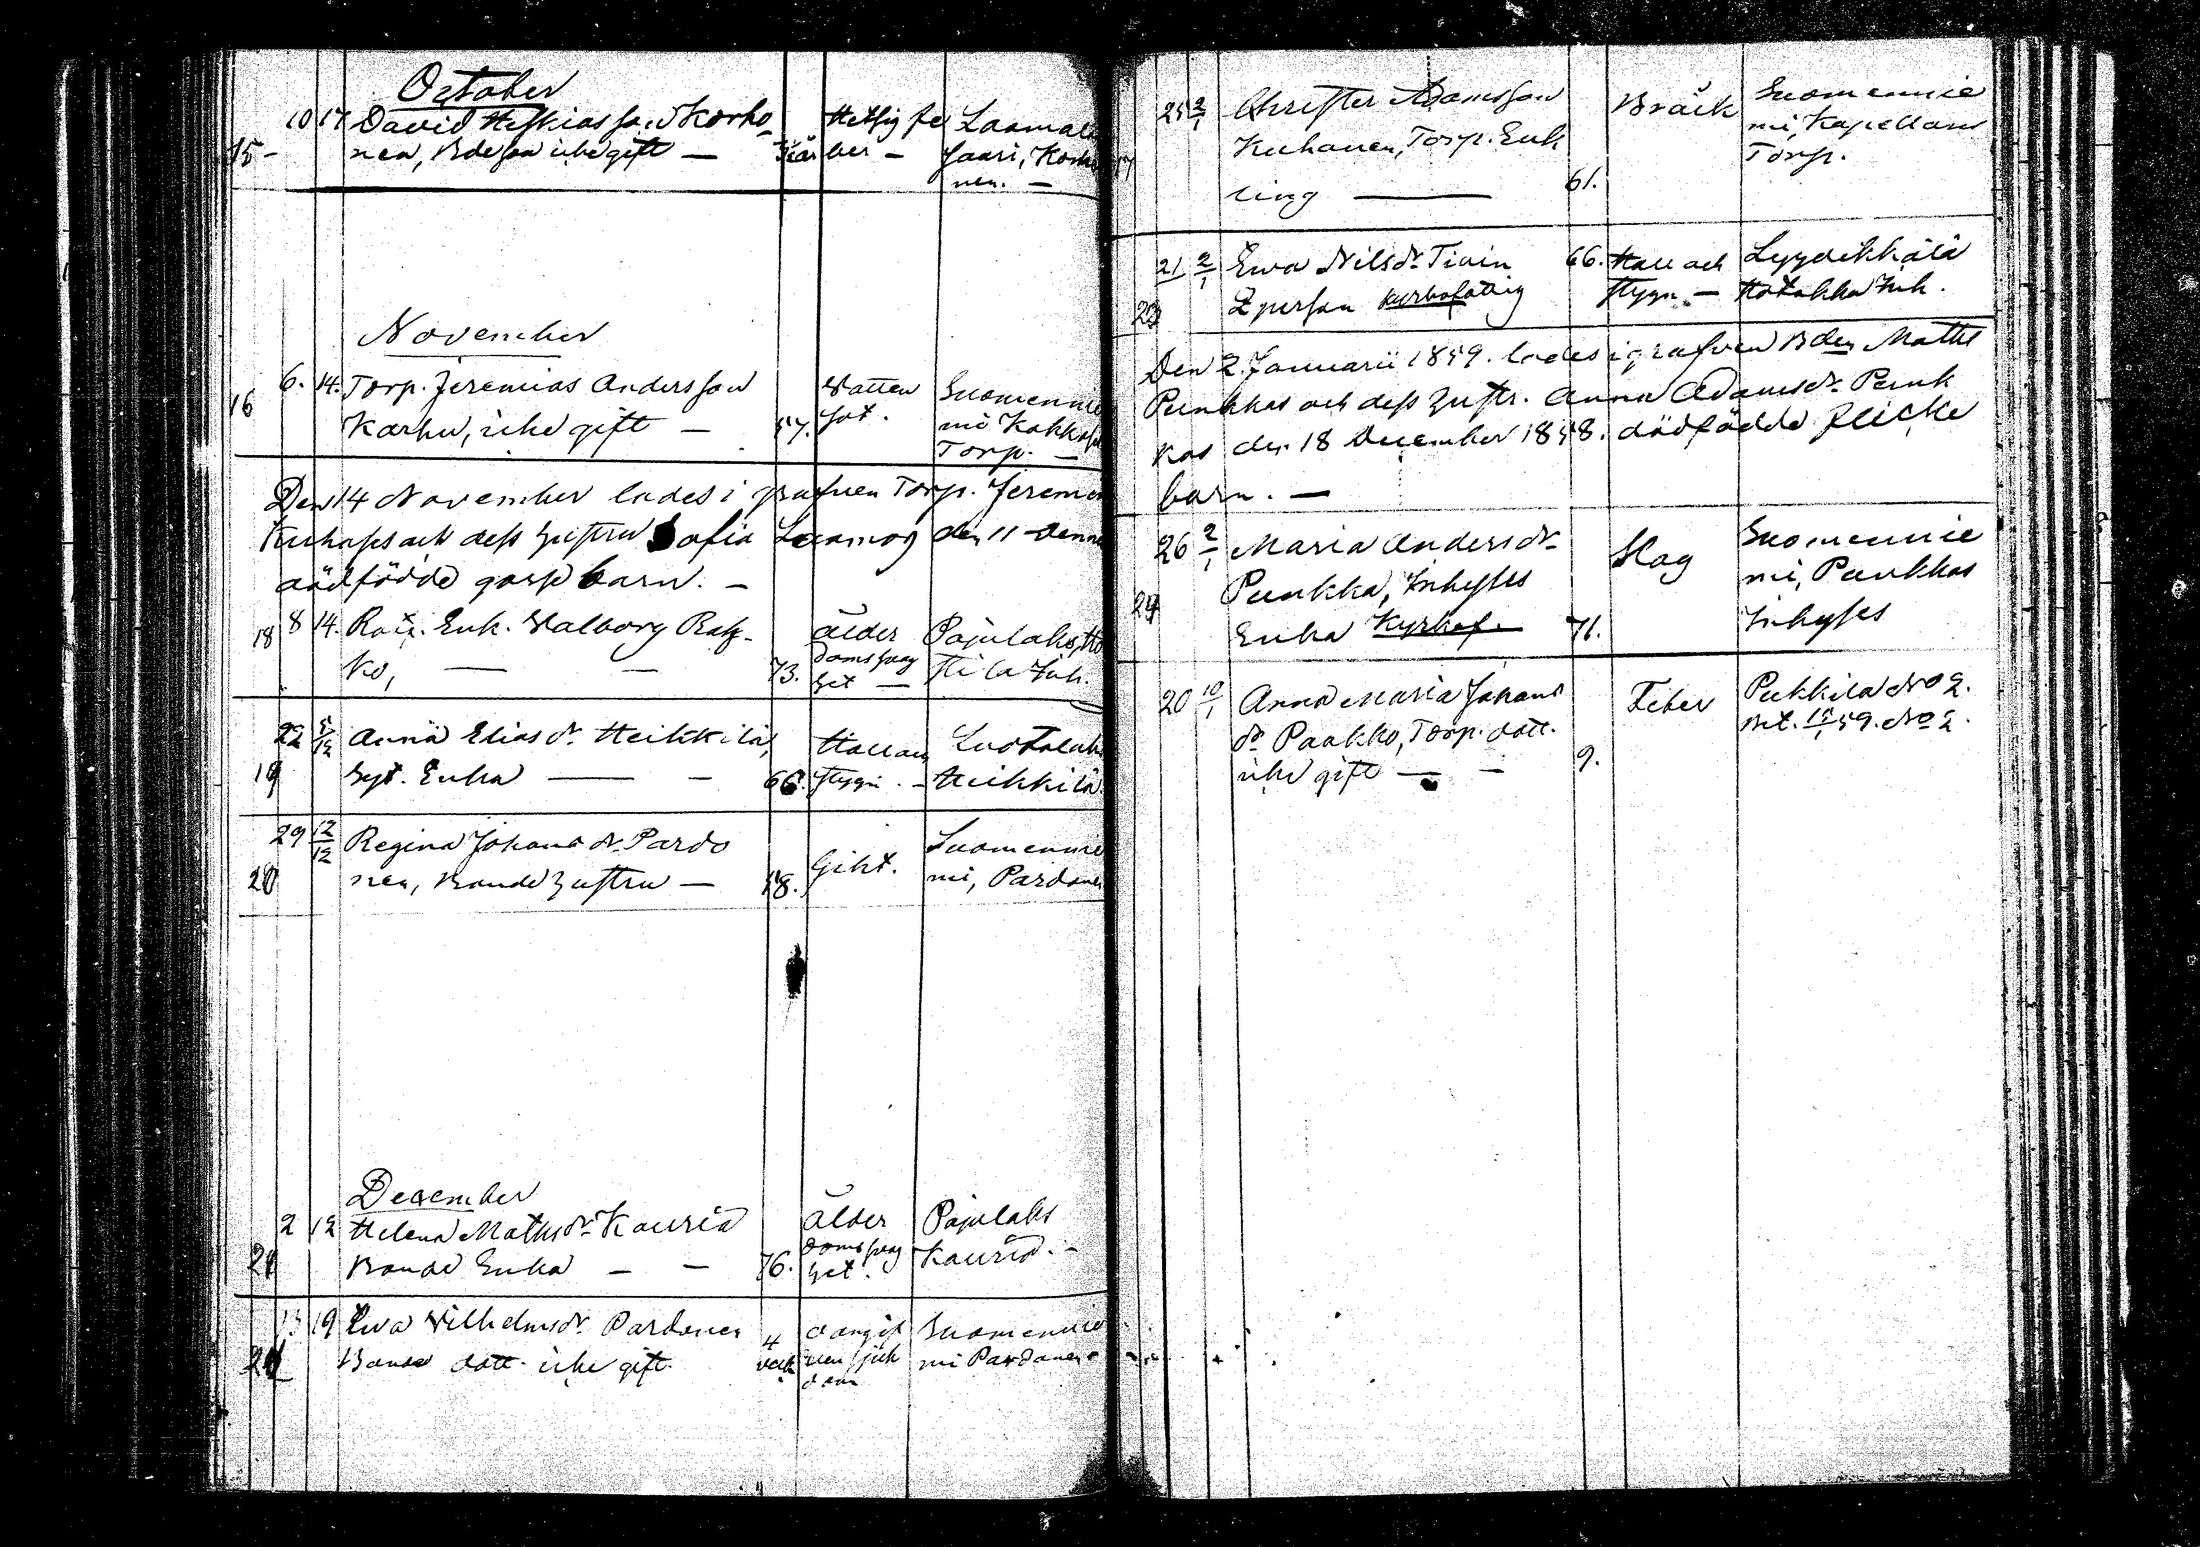 October
10 17 David Heskiasson Korho-
15- nen, Bdeson icke gift — 3 är
Hetsig fe
ber —
Laamala
saari, Korho
nen. —
November
6. 14. Torp. Jeremias Andersson
16 Karhu, icke gift — 57.
Watten
sot.
Suomennie
mi Kokko
Torp. —
Den 14 November lades i grafven Torp. Jeremias
och dess hustru Sofia den 11 denne
dödfödde gosse barn. —
18 8 14. Enk. Walborg
ko, — — 73.
Ålder
doms svag
het —
Pajulaks, Ho
Inh.
22 5/12 Anna Elias dr. Heikkilä,
19 Syt. Enka — — 66.
Håll och
Stygn. —
Luotolaks
Heikkilä
29 12/12 Regina Johans dr. Pardo
20 nen, Bonde hustru — 58.
Gikt.
Suomennie
mi, Pardonen
December
2 12 Helena Maths dr. Kauria
21 Bonde Enka — — 76.
Ålder
doms svag
het.
Pajulaks
Kauria. —
13 19 Ewa Wilhelms dr. Pardonen
Bonde dott. icke gift. 4
veck
oangif
ven sjuk
dom
Suomennie
mi Pardonen
25 2/1 Christer Adamsson
Kuhanen, Torp. Enk
ling — 61.
Bräck
Suomennie
mi, Kapellans
Torp.
21 2/1 Ewa Nils dr. Tiain 66.
23 Eperson Kyrkofattig
Håll och
Stygn. —
Lyydikkälä
Hotakka Inh.
Den 2. Januarii 1859. lades i grafven Bden Maths
Punkkas och dess hustr. Anna Adams dr. Punk
kas den 18 December 1858. dödfödde flicke
barn. —
26 2/1 Maria Anders dr.
24 Punkka, Inhyses
Enka Kyrkof. 71.
Slag
Suomennie
mi, Punkkas
Inhyses
20 10/1 Anna Maria Johans
dr. Paakko, Torp. dott.
icke gift — — 9.
Feber
Pukkila No 2.
Bet. 10/1 59. No 2.